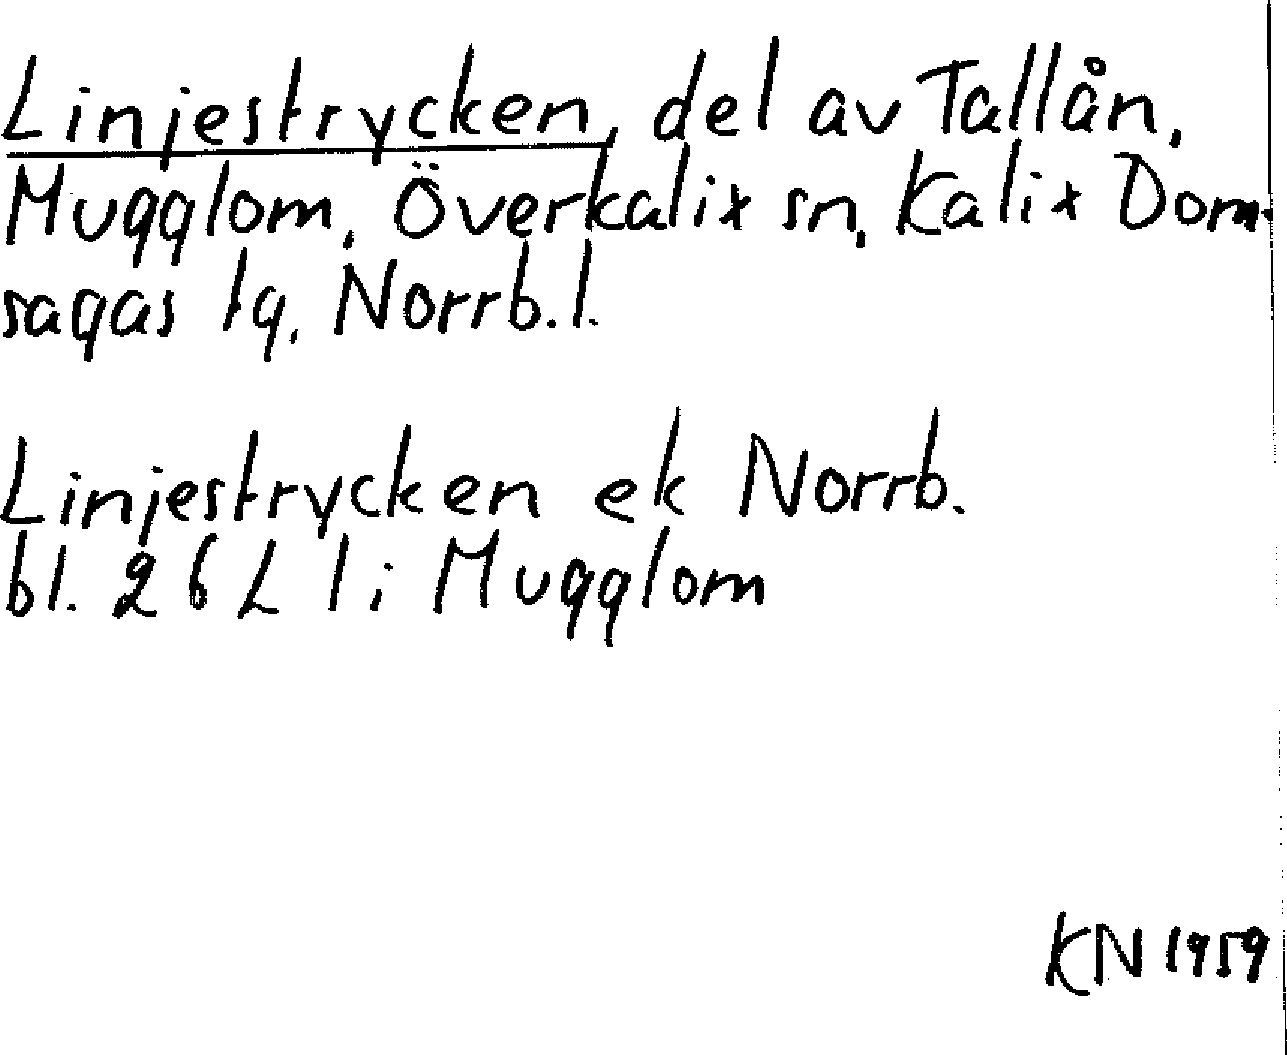 Linjestrycken, del av Tallån,
Mugglom, Överkalix sn, Kalix Dom-
sagas tg, Norrb. l.
Linjestrycken ek Norrb.
bl. 26 L l i Mugglom
KN 1959